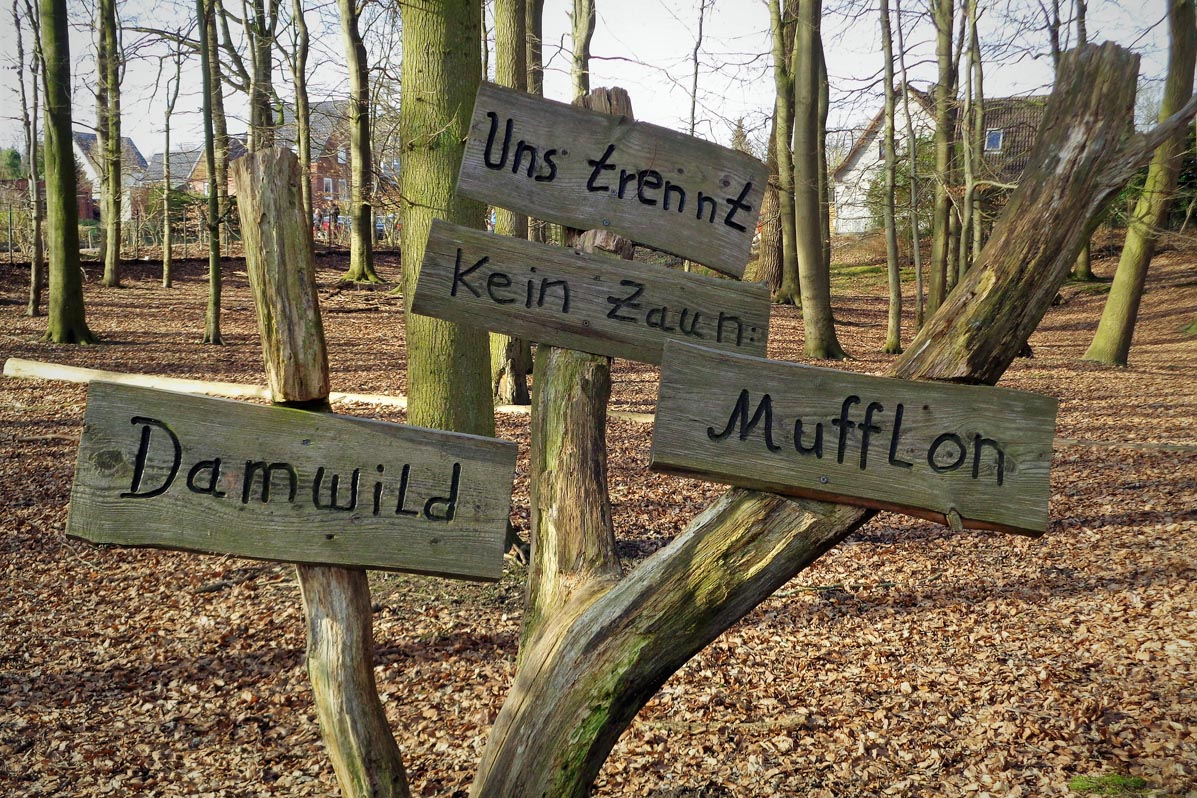 Uns trennt
Kein Zaun:
Damwild
Mufflon